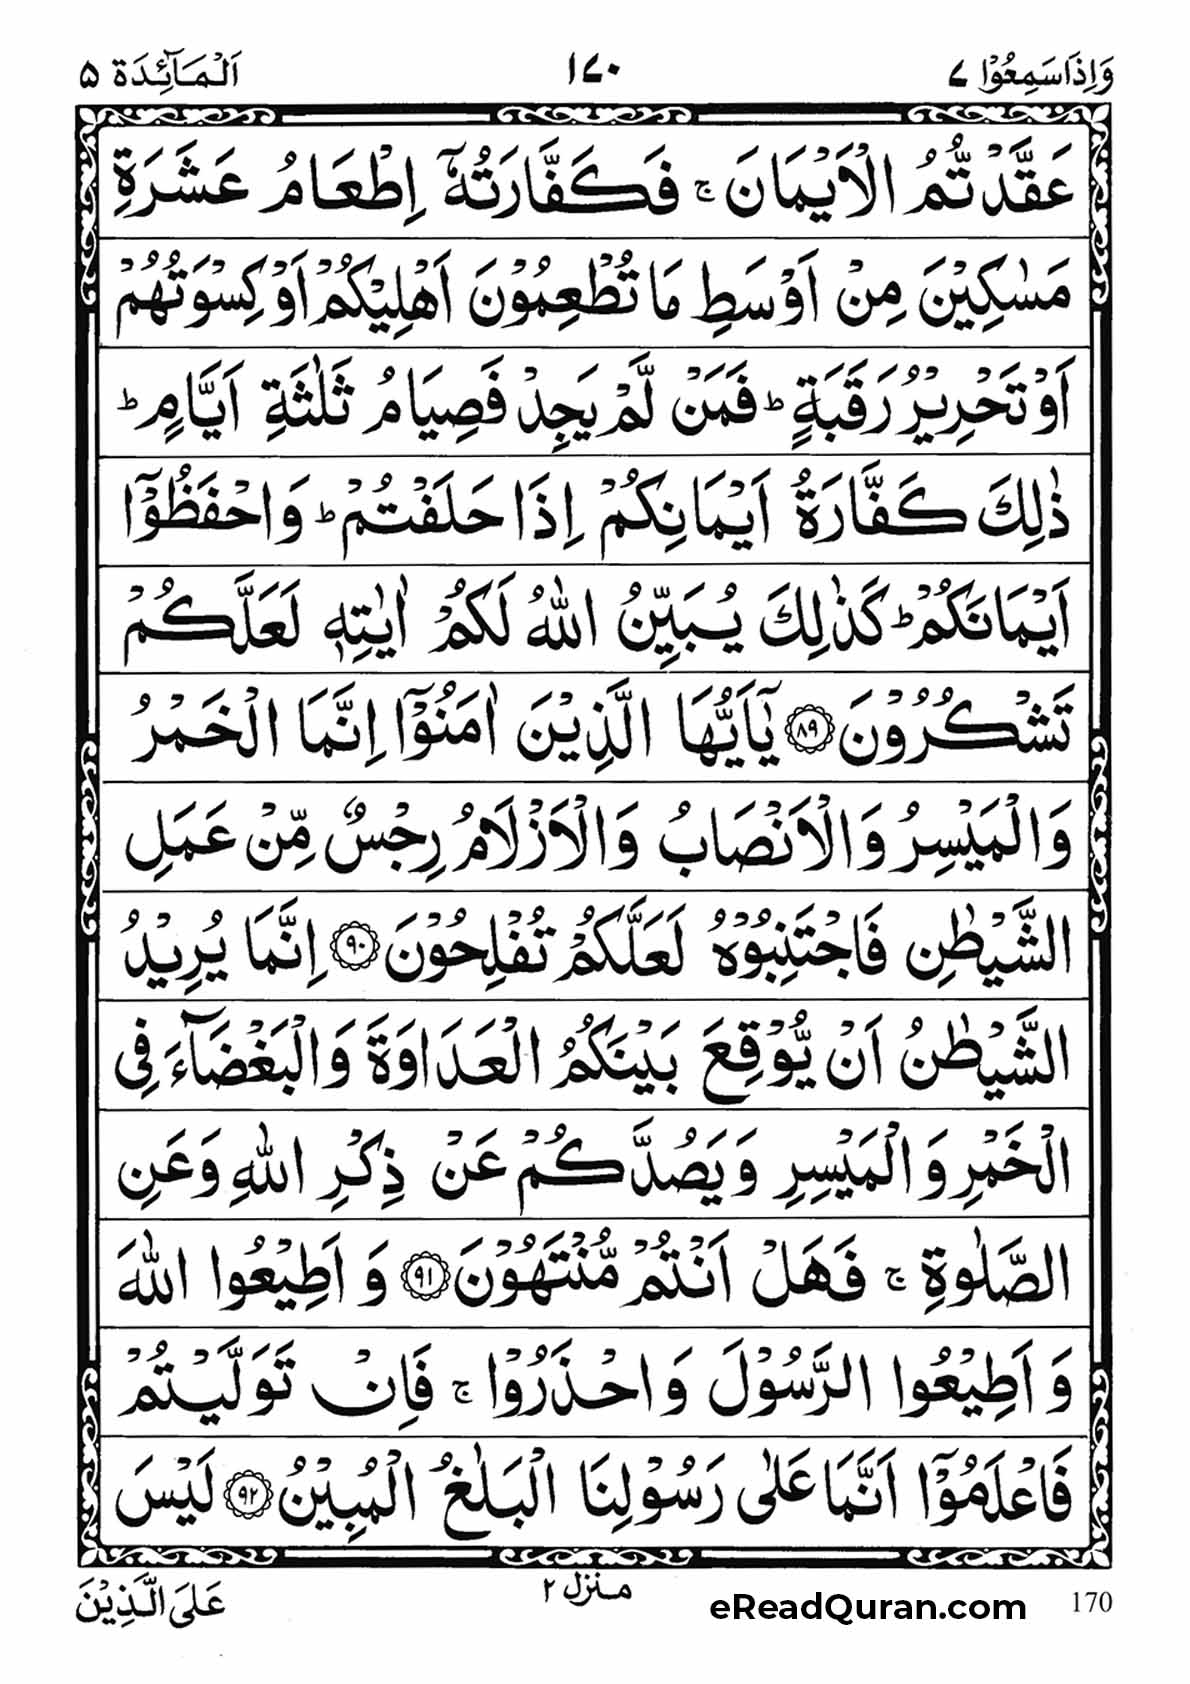 وَاِذَا سَمِعُوْا ۷ ۱۷۰ اَلْمَآئِدَة ۵
عَقَّدْتُّمُ الْاَيْمَانَ ۚ فَكَفَّارَتُهٗۤ اِطْعَامُ عَشَرَةِ
مَسٰكِيْنَ مِنْ اَوْسَطِ مَا تُطْعِمُوْنَ اَهْلِيْكُمْ اَوْ كِسْوَتُهُمْ
اَوْ تَحْرِيْرُ رَقَبَةٍ ؕ فَمَنْ لَّمْ يَجِدْ فَصِيَامُ ثَلٰثَةِ اَيَّامٍ ؕ
ذٰلِكَ كَفَّارَةُ اَيْمَانِكُمْ اِذَا حَلَفْتُمْ ؕ وَاحْفَظُوْۤا
اَيْمَانَكُمْ ؕ كَذٰلِكَ يُبَيِّنُ اللّٰهُ لَكُمْ اٰيٰتِهٖ لَعَلَّكُمْ
تَشْكُرُوْنَ ۸۹ يٰۤاَيُّهَا الَّذِيْنَ اٰمَنُوْۤا اِنَّمَا الْخَمْرُ
وَالْمَيْسِرُ وَالْاَنْصَابُ وَالْاَزْلَامُ رِجْسٌ مِّنْ عَمَلِ
الشَّيْطٰنِ فَاجْتَنِبُوْهُ لَعَلَّكُمْ تُفْلِحُوْنَ ۹۰ اِنَّمَا يُرِيْدُ
الشَّيْطٰنُ اَنْ يُّوْقِعَ بَيْنَكُمُ الْعَدَاوَةَ وَالْبَغْضَآءَ فِى
الْخَمْرِ وَالْمَيْسِرِ وَيَصُدَّكُمْ عَنْ ذِكْرِ اللّٰهِ وَعَنِ
الصَّلٰوةِ ۚ فَهَلْ اَنْتُمْ مُّنْتَهُوْنَ ۹۱ وَاَطِيْعُوا اللّٰهَ
وَاَطِيْعُوا الرَّسُوْلَ وَاحْذَرُوْا ۚ فَاِنْ تَوَلَّيْتُمْ
فَاعْلَمُوْۤا اَنَّمَا عَلٰى رَسُوْلِنَا الْبَلٰغُ الْمُبِيْنُ ۹۲ لَيْسَ
عَلَى الَّذِيْنَ منزل ۲ eReadQuran.com 170